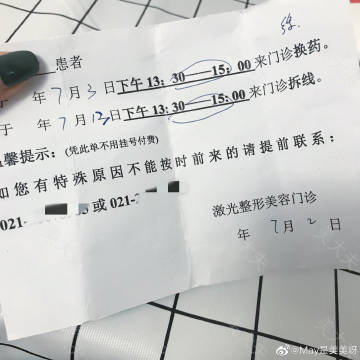 患者
年7月3日下午 13：30——15：00来门诊换药。
于 年7月12日下午 13：30——15：00来门诊拆线。
温馨提示：(凭此单不用挂号付费)
如您有特殊原因不能按时前来的请提前联系：
021- 或 021-
激光整形美容门诊
年 7月2日
@May是美美呀